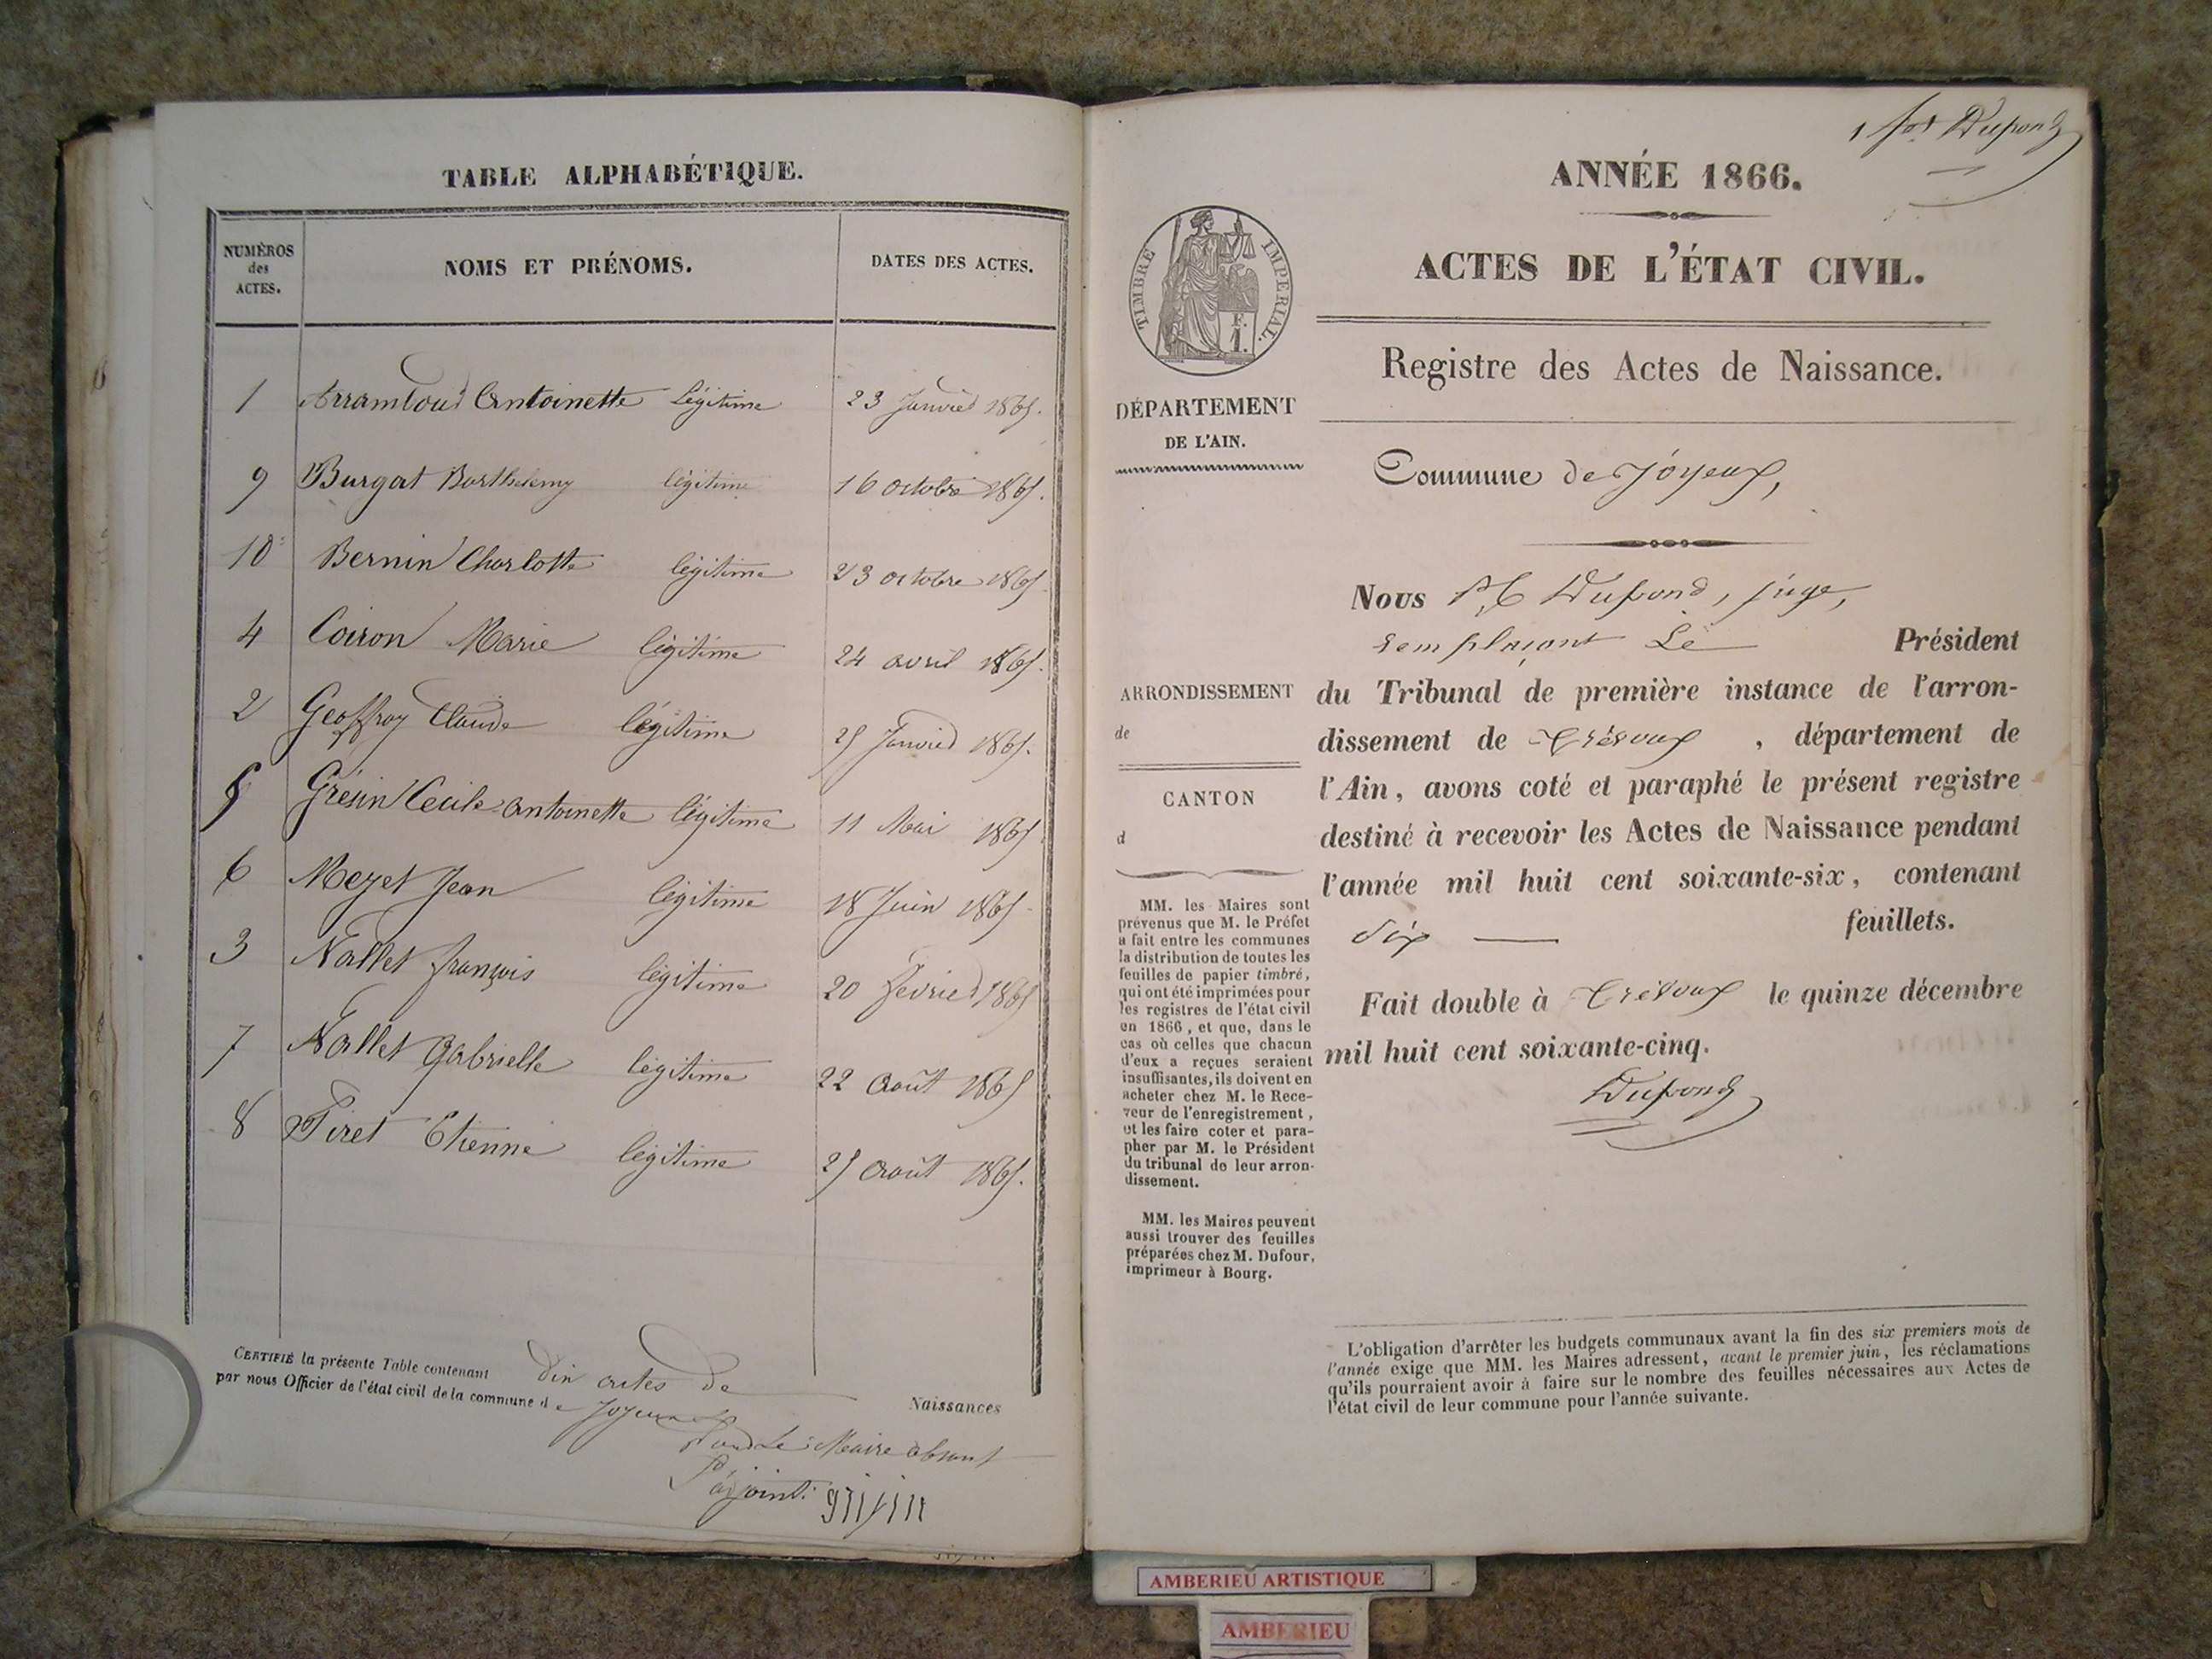 TABLE ALPHABÉTIQUE.
NUMÉROS des ACTES.
NOMS ET PRÉNOMS.
DATES DES ACTES.
1 Antoinette Légitime 23 Janvier 1865.
9 Burgat Barthelemy légitime 16 octobre 1865.
10 Bernin Charlotte légitime 23 octobre 1865
4 Coiron Marie légitime 24 avril 1865.
2 Geoffroy Claude légitime 25 Janvier 1865.
5 Grésin Cecile antoinette légitime 11 Mai 1865
6 Mezet Jean légitime 18 Juin 1865
3 Nallet françois légitime 20 fevrier 1865
7 Nallet Gabrielle légitime 22 Août 1865
8 Tiret Etienne légitime 25 Août 1865.
CERTIFIÉ la présente Table contenant dix actes de Naissances
par nous Officier de l'état civil de la commune de Joyeux
Pour Le Maire absent
L'adjoint
1 fet Dupond
ANNÉE 1866.
ACTES DE L'ÉTAT CIVIL.
Registre des Actes de Naissance.
TIMBRE IMPERIAL.
F.
1.
DÉPARTEMENT
DE L'AIN.
Commune de Joyeux,
Nous Dupond, juge,
remplaçant Le Président
du Tribunal de première instance de l'arron-
dissement de Trévoux , département de
l'Ain, avons coté et paraphé le présent registre
destiné à recevoir les Actes de Naissance pendant
l'année mil huit cent soixante-six, contenant
six feuillets.
Fait double à Trévoux le quinze décembre
mil huit cent soixante-cinq.
Dupond
ARRONDISSEMENT
de
CANTON
d
MM. les Maires sont
prévenus que M. le Préfet
a fait entre les communes
la distribution de toutes les
feuilles de papier timbré,
qui ont été imprimées pour
les registres de l'état civil
en 1866, et que, dans le
cas où celles que chacun
d'eux a reçues seraient
insuffisantes, ils doivent en
acheter chez M. le Rece-
veur de l'enregistrement,
et les faire coter et para-
pher par M. le Président
du tribunal de leur arron-
dissement.
MM. les Maires peuvent
aussi trouver des feuilles
préparées chez M. Dufour,
imprimeur à Bourg.
L'obligation d'arrêter les budgets communaux avant la fin des six premiers mois de
l'année exige que MM. les Maires adressent, avant le premier juin, les réclamations
qu'ils pourraient avoir à faire sur le nombre des feuilles nécessaires aux Actes de
l'état civil de leur commune pour l'année suivante.
AMBERIEU ARTISTIQUE
AMBERIEU